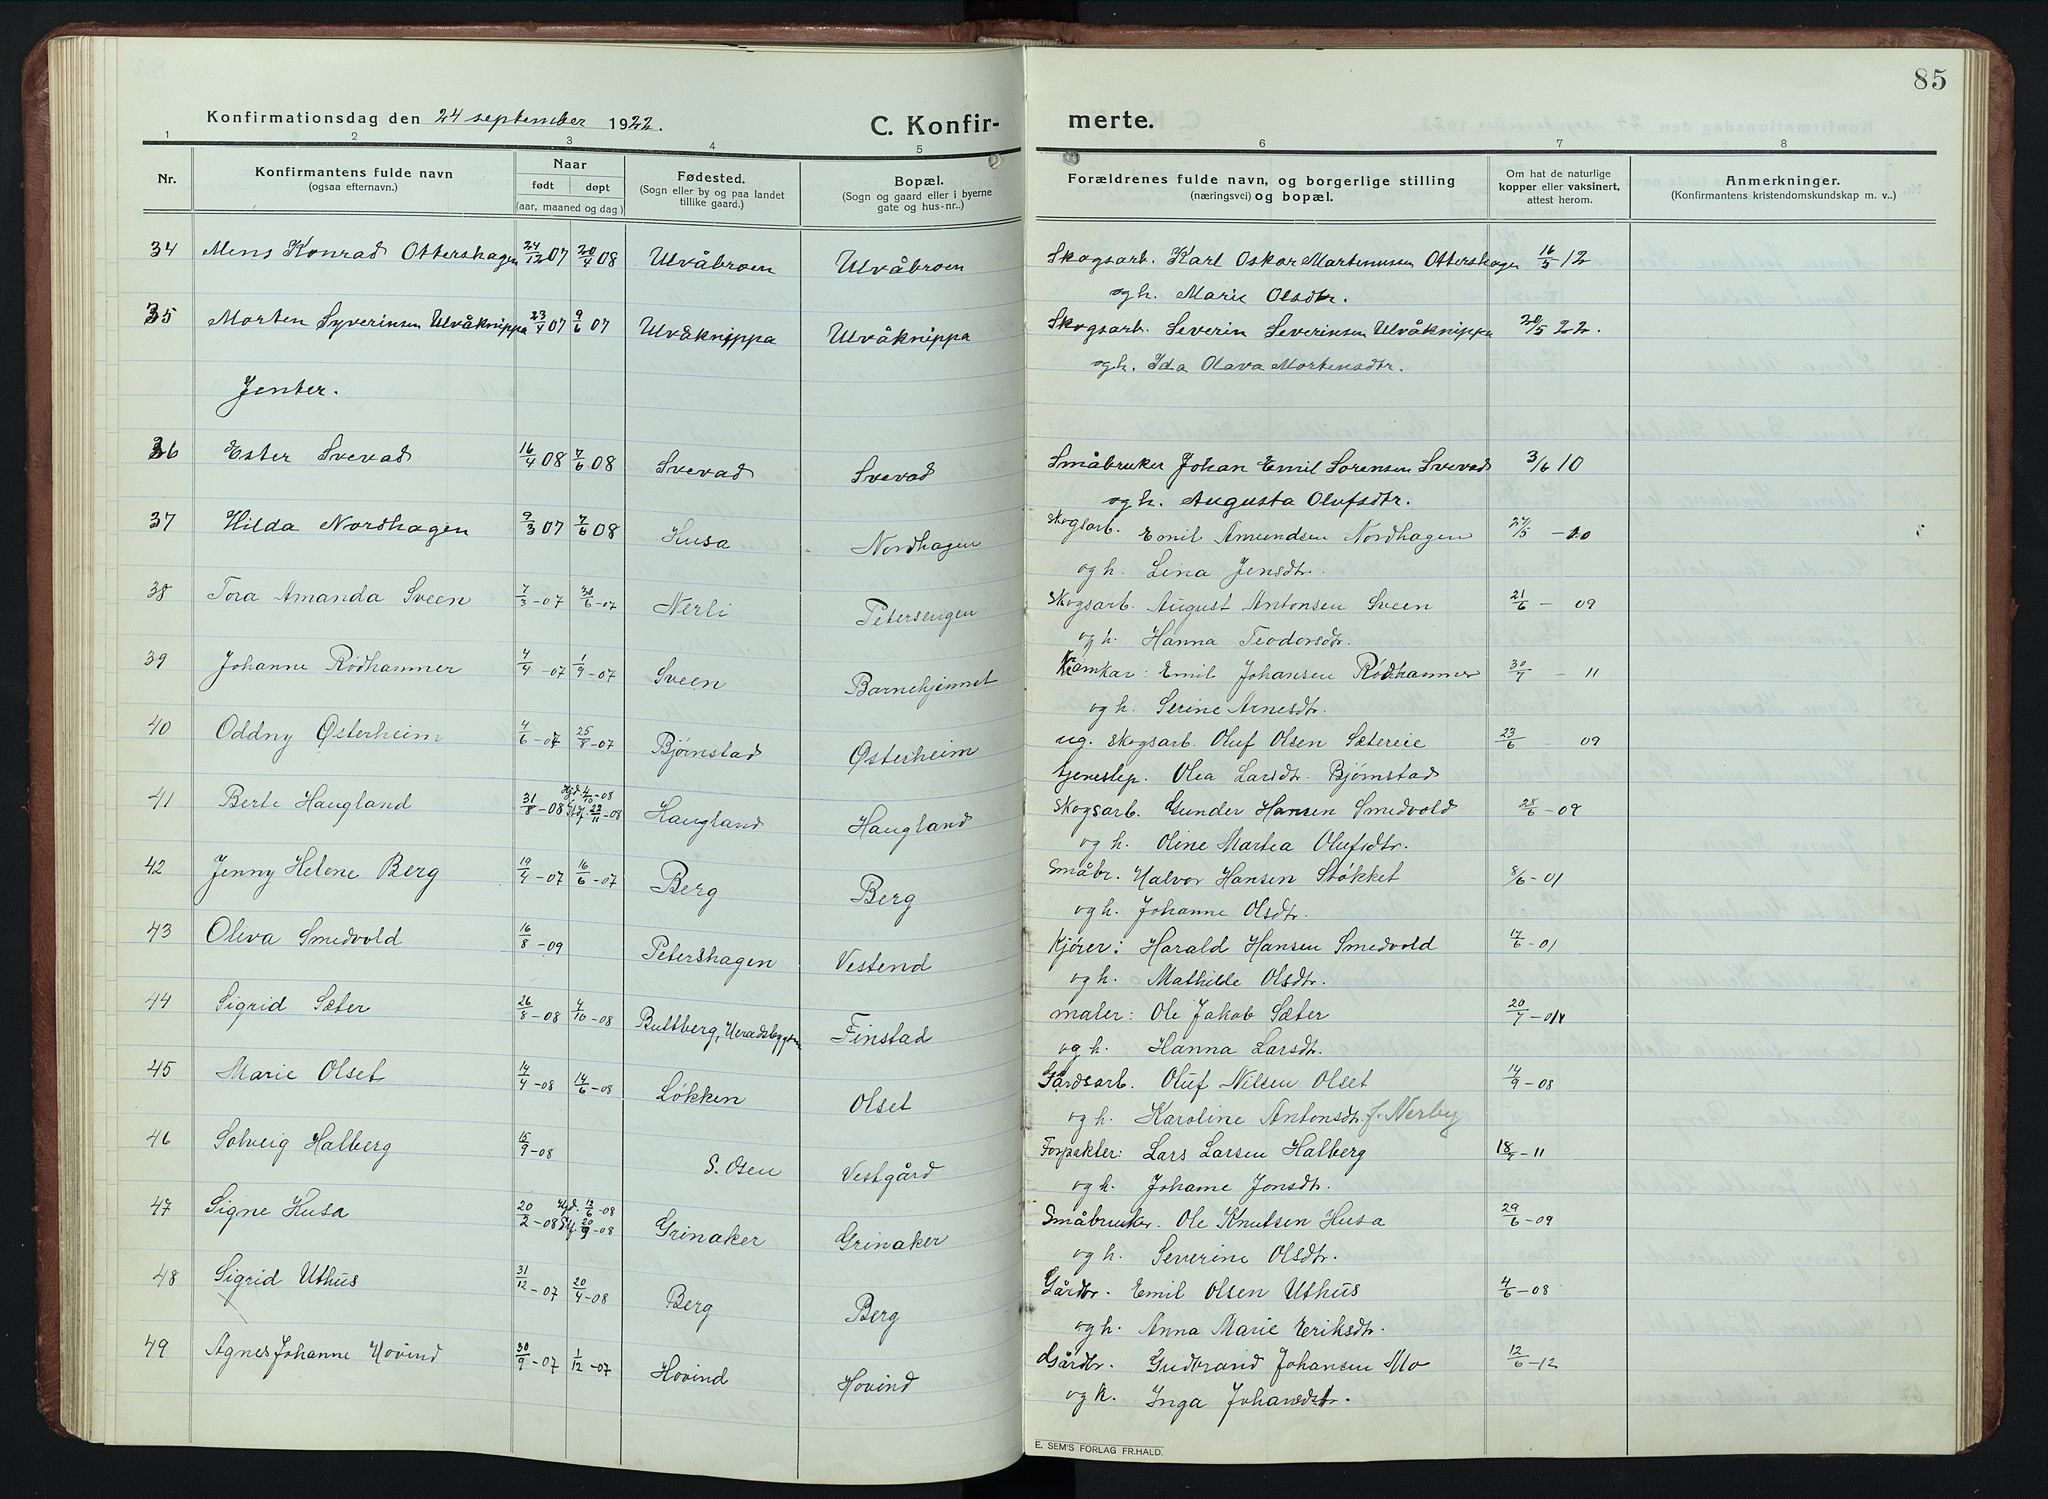 85
Konfirmationsdag den 24 september 1922.
C. Konfirmerte.
1 2 3 4 5 6 7 8
Nr. Konfirmantens fulde navn (ogsaa efternavn.) Naar født døpt (aar, maaned og dag) Fødested. (Sogn eller by og paa landet tillike gaard.) Bopæl. (Sogn og gaard eller i byerne gate og hus-nr..) Forældrenes fulde navn, og borgerlige stilling (næringsvei) og bopæl. Om hat de naturlige kopper eller vaksinert, attest herom. Anmerkninger. (Konfirmantens kristendomskundskap m. v..)
34 Mens Konrad Ottershagen 24/12 07 20/4 08 Ulvåbroen Ulvåbroen Skogsarb. Karl Oskar Martenussen Ottershagen 16/5 12
og h. Marie Olsdtr.
35 Morten Syverinsen Ulvåknippa 23/4 07 9/6 07 Ulvåknippa Ulvåknippa Skogsarb. Severin Severinsen Ulvåknippa 20/5 22.
og h. Ida Olava Mortensdtr.
Jenter.
36 Ester Svevad 16/4 08 7/6 08 Svevad Svevad Småbruker Johan Emil Sorensen Svevad 3/6 10
og h. Augusta Olufsdtr.
37 Hilda Nordhagen 9/3 07 7/6 08 Husa Nordhagen Skogsarb. Emil Amundsen Nordhagen 27/5 - 20
og h. Lina Jensdtr.
38 Tora Amanda Sveen 7/3 - 07 30/6 - 07 Nerli Petersengen Skogsarb. August Antonsen Sveen 21/6 - 09
og h. Hanna Teodorsdtr.
39 Johanne Rødhammer 4/4 - 07 1/9 - 07 Sveen Barnehjemmet Kramkar: Emil Johansen Rødhammer 30/7 - 11
og h. Serine Arnesdtr.
40 Oddny Østerheim 4/6 - 07 25/8 - 07 Bjørnstad Østerheim ug. skogsarb. Oluf Olsen Sætereie 23/6 - 09
tjenestep. Olea Larsdtr. Bjørnstad
41 Berte Haugland 31/8 - 08 Hjd. 4/10 - 08 Haugland Haugland Skogsarb. Gunder Hansen Smedvold 28/6 - 09
Stf. 22/11 - 08 og h. Oline Martea Olufsdtr.
42 Jenny Helene Berg 19/4 - 07 16/6 - 07 Berg Berg Småbr. Halvor Hansen Støkket 8/6 - 01
og h. Johanne Olsdtr.
43 Oleva Smedvold 16/8 - 09 Petershagen Vestend Kjører: Harald Hansen Smedvold 17/6 - 01
og h. Mathilde Olsdtr.
44 Sigrid Sæter 26/8 - 08 4/10 - 08 Bultberg, Heradsbygden Finstad maler: Ole Jakob Sæter 20/7 - 
og h. Hanna Larsdtr.
45 Marie Olset 14/4 - 08 14/6 - 08 Løkken Olset Gårdsarb. Oluf Nilsen Olset 14/9 - 08
og h. Karoline Antonsdtr. f. Nerby
46 Solveig Halberg 15/9 - 08 S. Osen Vestgård Forpakter: Lars Larsen Halberg 18/7 - 11
og h. Johanne Jonsdtr.
47 Signe Husa 20/2 - 08 Hjd. 12/6 - 08 Grinaker Grinaker Småbruker. Ole Knutsen Husa 29/6 - 09
Stf. 20/9 - 08 og h. Severine Olsdtr.
48 Sigrid Uthus 31/12 - 07 20/4 - 08 Berg Berg Gårdbr. Emil Olsen Uthus 4/6 - 08
og h. Anna Marie Eriksdtr.
49 Agnes Johanne Hovind 30/9 - 07 1/12 - 07 Hovind Hovind Gårdbr. Gudbrand Johansen Mo 12/6 - 12
og h. Inga Johansdtr.
E. SEM'S FORLAG FR.HALD.